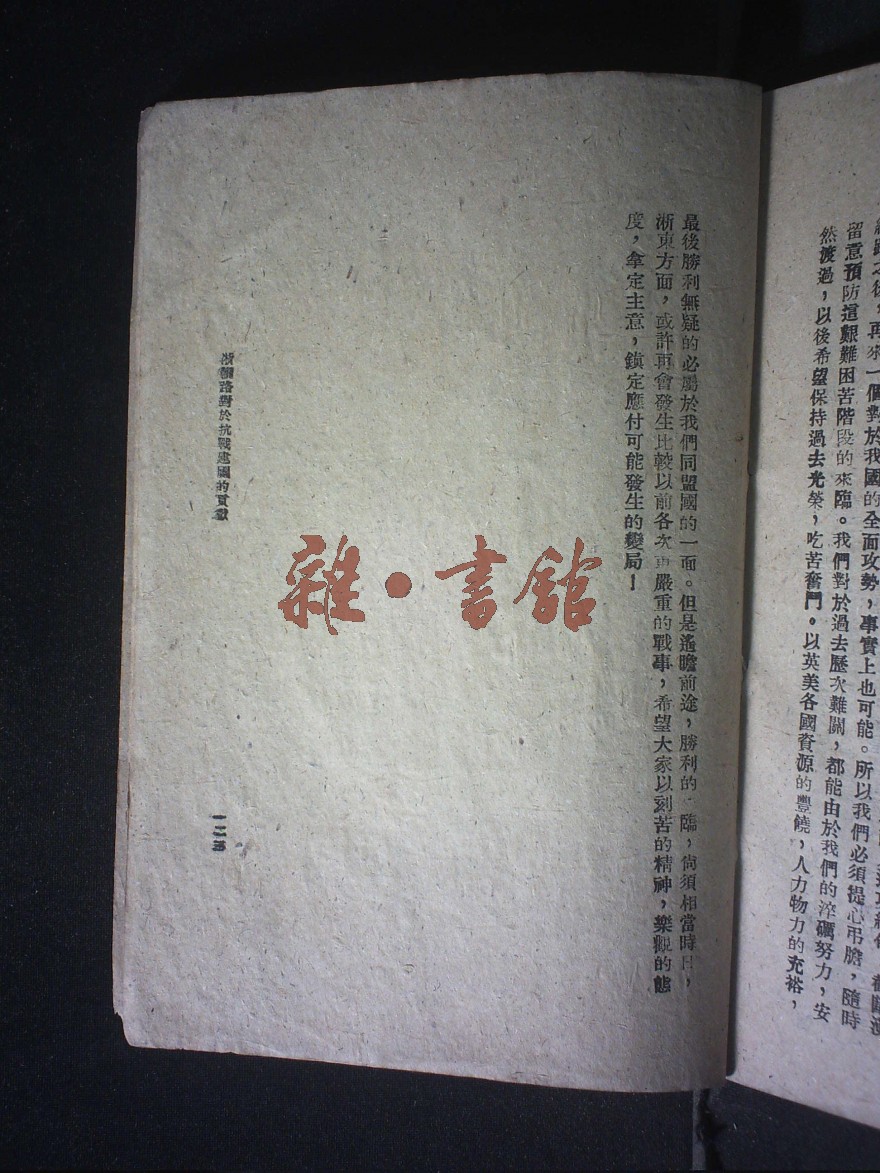 之後，再來一個對於我國的全面攻勢，事實上也可能。所以我們必須提心吊膽，隨時
留意預防這艱難困苦階段的來臨。我們對於過去歷次難關，都能由於我們的淬礪努力，安
然渡過，以後希望保持過去光榮，吃苦奮鬥。以英美各國資源的豐饒，人力物力的充裕，
最後勝利無疑的必屬於我們同盟國的一面。但是遙瞻前途，勝利的臨，尙須相當時日，
浙東方面，或許再會發生比較以前各次再嚴重的戰事，希望大家以刻苦的精神，樂觀的態
度，拿定主意，鎮定應付可能發生的變局！
浙贛路對於抗戰建國的貢獻
一二五
雜·書舘